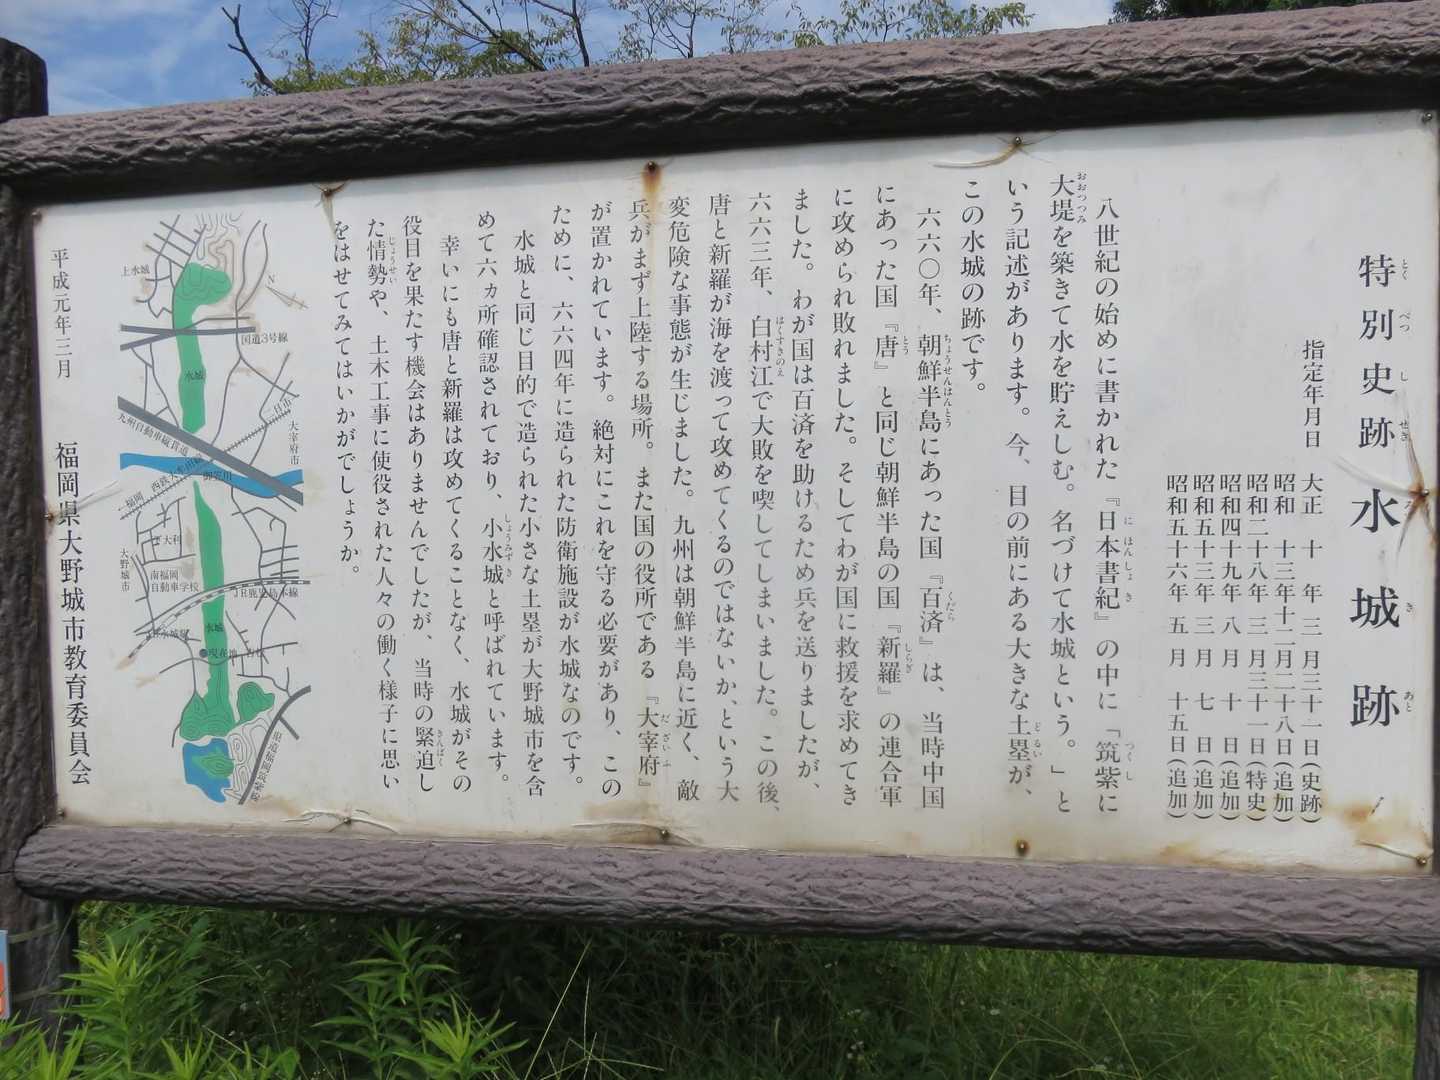 特別史跡 水城跡
指定年月日 大正 十 年 三 月三十一日(史跡)
昭和 十三年十二月二十八日(追加)
昭和二十八年 三 月三十一日(特史)
昭和四十九年 八 月 十 日(追加)
昭和五十三年 三 月 七 日(追加)
昭和五十六年 五 月 十五日(追加)
八世紀の始めに書かれた『日本書紀』の中に「筑紫に
大堤を築きて水を貯えしむ。名づけて水城という。」と
いう記述があります。今、目の前にある大きな土塁が、
この水城の跡です。
六六〇年、朝鮮半島にあった国『百済』は、当時中国
にあった国『唐』と同じ朝鮮半島の国『新羅』の連合軍
に攻められ敗れました。そしてわが国に救援を求めてき
ました。わが国は百済を助けるため兵を送りましたが、
六六三年、白村江で大敗を喫してしまいました。この後、
唐と新羅が海を渡って攻めてくるのではないか、という大
変危険な事態が生じました。九州は朝鮮半島に近く、敵
兵がまず上陸する場所。また国の役所である『大宰府』
が置かれています。絶対にこれを守る必要があり、この
ために、六六四年に造られた防衛施設が水城なのです。
水城と同じ目的で造られた小さな土塁が大野城市を含
めて六ヵ所確認されており、小水城と呼ばれています。
幸いにも唐と新羅は攻めてくることなく、水城がその
役目を果たす機会はありませんでしたが、当時の緊迫し
た情勢や、土木工事に使役された人々の働く様子に思い
をはせてみてはいかがでしょうか。
上水城
N
国道3号線
水城
二日市
太宰府市
九州自動車縦貫道
西鉄大牟田線
御笠川
福岡
下大利
大野城市
南福岡
自動車学校
JR鹿児島本線
水城
現在地
県道福岡筑紫野線
平成元年三月
福岡県大野城市教育委員会